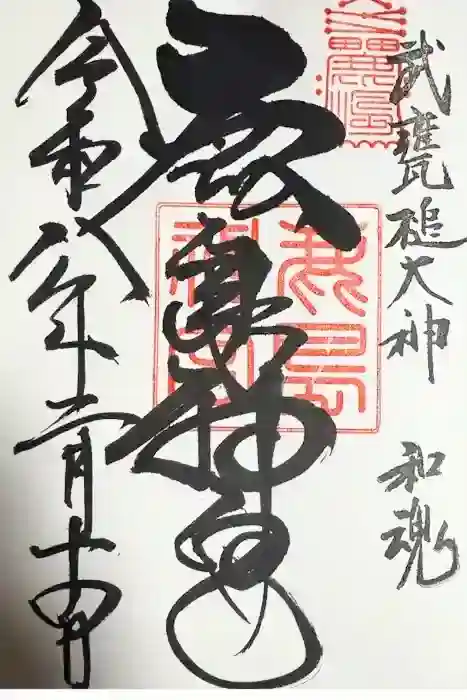 武甕槌大神　和魂
鹿島神宮
鹿島神宮
令和八年二月十四日